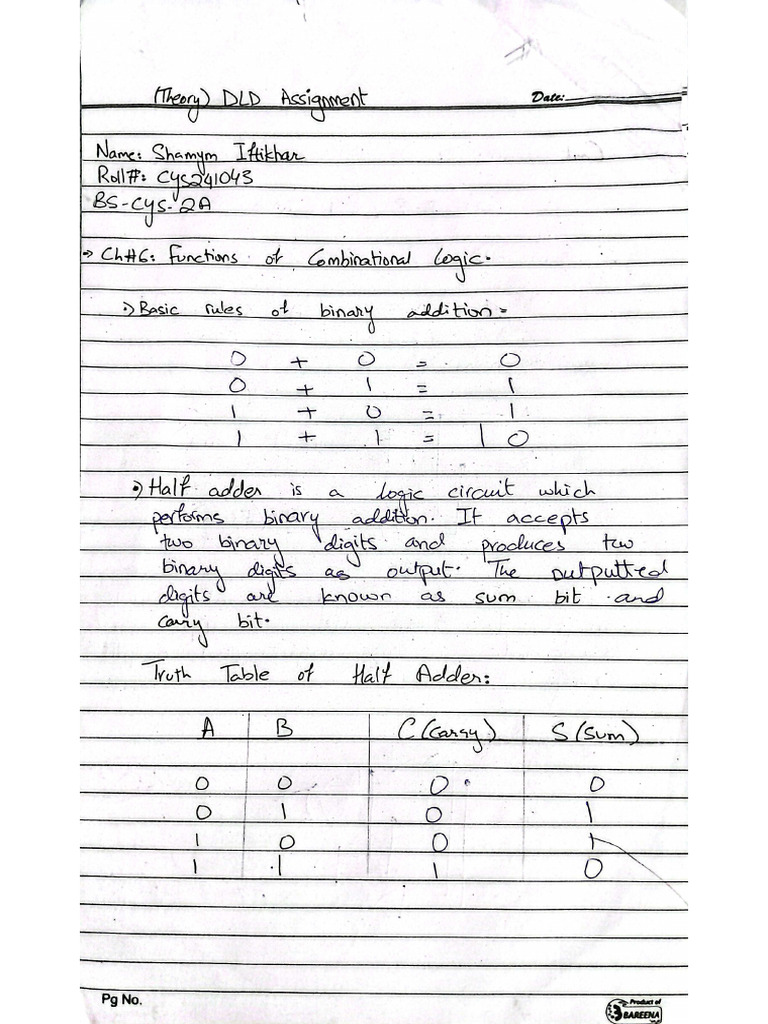 (Theory) DLD Assignment Date:
Name: Shamym Iftikhar
Roll#: Cys241043
BS-Cys-2A
Ch#6: Functions of Combinational Logic.
Basic rules of binary addition=
0 + 0 = 0
0 + 1 = 1
1 + 0 = 1
1 + 1 = 10
Half adder is a logic circuit which
performs binary addition. It accepts
two binary digits and produces two
binary digits as output. The outputted
digits are known as sum bit and
carry bit.
Truth Table of Half Adder:
A B C (Carry) S (Sum)
0 0 0 0
0 1 0 1
1 0 0 1
1 1 1 0
Pg No.
Product of
BAREENA